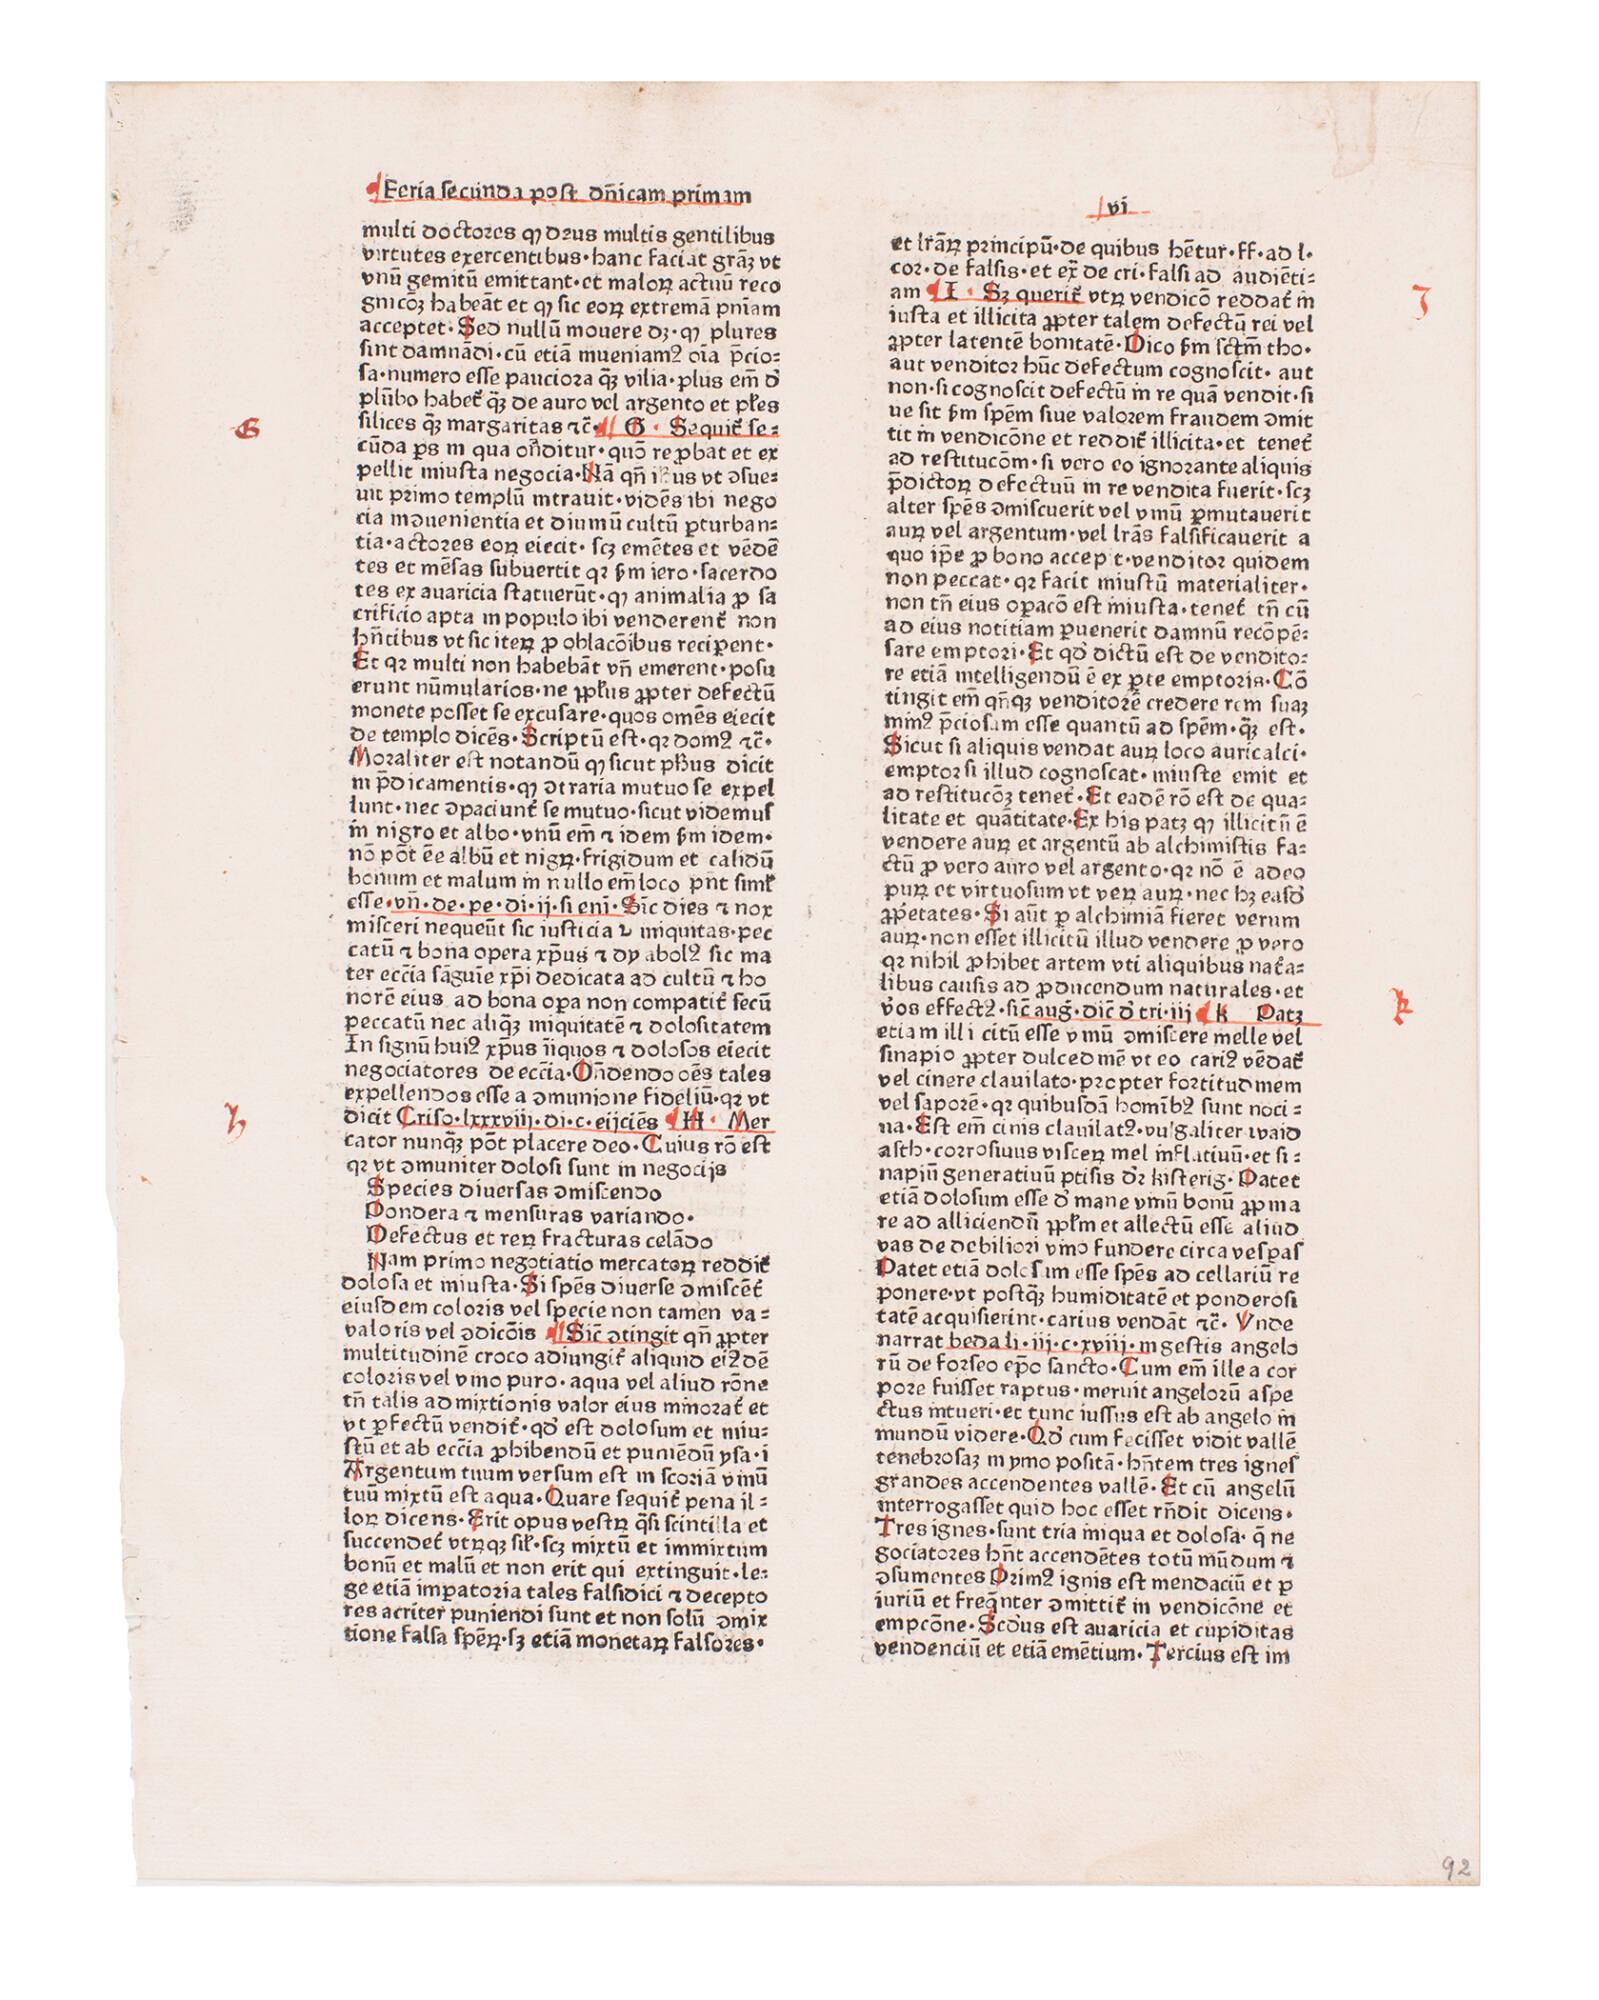 Feria secunda post dn̄icam primam
multi doctores ꝙ deus multis gentilibus
virtutes exercentibus·hanc faciat grāꝫ vt
vnū gemitū emittant·et maloꝝ actuū reco
gnicōꝫ habeāt et ꝙ sic eoꝝ extremā pn̄iam
acceptet·Sed nullū mouere dꝫ·ꝙ plures
sint damnādi·cū etiā inueniamꝰ oīa p̄cio⸗
sa·numero esse pauciora q̄ꝫ vilia·plus em̄ d̓
plūbo habet᷑ q̄ꝫ de auro vel argento et pl̄es
silices q̄ꝫ margaritas ⁊c̄· G · Sequit᷑ se⸗
cūda ps in qua on̄ditur·quō reꝓbat et ex
pellit iniusta negocia·Nā qn̄ ihus vt ↄsue⸗
uit primo templū intrauit·vidēs ibi nego
cia inↄuenientia et diuinū cultū ꝑturban⸗
tia·actores eoꝝ eiecit·scꝫ emētes et vēdē
tes et mēsas subuertit qꝛ ẜm iero·sacerdo
tes ex auaricia statuerūt·ꝙ animalia ꝓ sa
crificio apta in populo ibi venderent᷑ non
hn̄tibus vt sic iteꝝ ꝓ oblacōibus reciꝑent·
Et qꝛ multi non habebāt vn̄ emerent·posu
erunt nūmularios·ne ppl̄us ꝓpter defectū
monete posset se excusare·quos omēs eiecit
de templo dicēs·Scriptū est·qꝛ domꝰ ⁊c̄·
Moraliter est notandū ꝙ sicut ph̄us dicit
in p̄dicamentis·ꝙ ↄtraria mutuo se expel
lunt·nec ↄpaciunt᷑ se mutuo·sicut videmus
in nigro et albo·vnū em̄ ⁊ idem ẜm idem·
nō pōt ēe albū et nigꝝ·frigidum et calidū
bonum et malum in nullo em̄ loco pn̄t siml̄
esse·vn̄·de·pe·di·ij·si eni·Sic̄ dies ⁊ nox
misceri nequeūt sic iusticia ⁊ iniquitas·pec
catū ⁊ bona opera xp̄us ⁊ dyabolꝰ sic ma
ter ecc̄ia sāguīe xp̄i dedicata ad cultū ⁊ ho
norē eius ad bona oꝑa non compatit᷑ secū
peccatū nec aliq̄ꝫ iniquitatē ⁊ dolositatem
In signū huiꝰ xp̄us īiquos ⁊ dolosos eiecit
negociatores de ecc̄ia·On̄dendo oēs tales
expellendos esse a ↄmunione fideliū·qꝛ vt
dicit Criso·lxxxviij·di·c·eijciēs H · Mer
cator nunq̄ꝫ pōt placere deo·Cuius rō est
qꝛ vt ↄmuniter dolosi sunt in negocijs
Species diuersas ↄmiscendo
Pondera ⁊ mensuras variando·
Defectus et reꝝ fracturas celādo
Nam primo negotiatio mercatoꝝ reddit᷑
dolosa et iniusta·Si spēs diuerse ↄmiscēt᷑
eiusdem coloris vel specie non tamen va⸗
valoris vel ↄdicōis Sic̄ ↄtingit qn̄ ꝓpter
multitudinē croco adiungit᷑ aliquid eiꝰdē
coloris vel vino puro·aqua vel aliud rōne
tn̄ talis admixtionis valor eius minorat᷑ et
vt ꝑfectū vendit᷑·qd̓ est dolosum et iniu⸗
stū et ab ecc̄ia ꝓhibendū et puniēdū ysa·i
Argentum tuum versum est in scoriā vinū
tuū mixtū est aqua·Quare sequit᷑ pena il⸗
loꝝ dicens·Erit opus vestꝝ q̄si scintilla et
succendet᷑ vtꝝqꝫ sil̄·scꝫ mixtū et immixtum
bonū et malū et non erit qui extinguit·le⸗
ge etiā imꝑatoria tales falsidici ⁊ decepto
res acriter puniendi sunt et non solū ↄmix
tione falsa spēꝝ·sꝫ etiā monetaꝝ falsores·
vi
et lr̄aꝝ principū·de quibus hētur·ff·ad l·
cor·de falsis·et ex̄ de cri·falsi ad audiēti⸗
am I · Sꝫ querit᷑ vtꝝ vendicō reddat᷑ in
iusta et illicita ꝓpter talem defectū rei vel
ꝓpter latentē bonitatē·Dico ẜm sctm̄ tho·
aut venditor hūc defectum cognoscit·aut
non·si cognoscit defectū in re quā vendit·si
ue sit ẜm spēm siue valorem fraudem ↄmit
tit in vendicōne et reddit᷑ illicita·et tenet᷑
ad restitucōm·si vero eo ignorante aliquis
p̄dictoꝝ defectuū in re vendita fuerit·scꝫ
alter spēs ↄmiscuerit vel vinū ꝑmutauerit
auꝝ vel argentum·vel lr̄as falsificauerit a
quo ip̄e ꝓ bono accepit·venditor quidem
non peccat·qꝛ facit iniustū materialiter·
non tn̄ eius oꝑacō est iniusta·tenet᷑ tn̄ cū
ad eius notitiam ꝑuenerit damnū recōpē⸗
sare emptori·Et qd̓ dictū est de vendito⸗
re etiā intelligendū ē ex ꝑte emptoris·Cō
tingit em̄ qn̄qꝫ venditorē credere rem suaꝫ
minꝰ p̄ciosam esse quantū ad spēm·q̄ꝫ est·
Sicut si aliquis vendat auꝝ loco auricalci·
emptor si illud cognoscat·iniuste emit et
ad restitucōꝫ tenet᷑·Et eadē rō est de qua⸗
litate et quātitate·Ex his patꝫ ꝙ illicitū ē
vendere auꝝ et argentū ab alchimistis fa⸗
ctū ꝓ vero auro vel argento·qꝛ nō ē adeo
puꝝ et virtuosum vt veꝝ auꝝ·nec hꝫ easd̓
ꝓp̄etates·Si aūt ꝑ alchimiā fieret verum
auꝝ·non esset illicitū illud vendere ꝓ vero
qꝛ nihil ꝓhibet artem vti aliquibus nat᷑a⸗
libus causis ad ꝓducendum naturales·et
v̓os effectꝰ·sic̄ aug̓·dic̄ d̓ tri·iij k Patꝫ
etiam illicitū esse vinū ↄmiscere melle vel
sinapio ꝓpter dulcedinē vt eo cariꝰ vēdat᷑
vel cinere clauilato·propter fortitudinem
vel saporē·qꝛ quibusdā homībꝰ sunt noci⸗
ua·Est em̄ cinis clauilatꝰ·vulgaliter waid
asth·corrosiuus visceꝝ mel inflatiuū·et si⸗
napiū generatiuū ptisis dꝛ̓ kisterig·Patet
etiā dolosum esse d̓ mane vinū bonū ꝓpina
re ad alliciendū ppl̄m et allectū esse aliud
vas de debiliori vino fundere circa vesꝑas
Patet etiā dolosum esse spēs ad cellariū re
ponere·vt postq̄ꝫ humiditatē et ponderosi
tatē acquisierint·carius vendāt ⁊c̄· Vnde
narrat beda li·iij·c·xviij·in gestis angelo
rū de forseo ep̄o sancto·Cum em̄ ille a cor
pore fuisset raptus·meruit angelorū aspe
ctus intueri·et tunc iussus est ab angelo in
mundū videre·Qd̓ cum fecisset vidit vallē
tenebrosaꝫ in ymo positā·hn̄tem tres ignes
grandes accendentes vallē·Et cū angelū
interrogasset quid hoc esset rn̄dit dicens·
Tres ignes·sunt tria iniqua et dolosa·q̄ ne
gociatores hn̄t accendētes totū mūdum ⁊
ↄsumentes Primꝰ ignis est mendaciū et ꝑ
iuriū et freq̄nter ↄmittit᷑ in vendicōne et
empcōne·Scd̓us est auaricia et cupiditas
vendenciū et etiā emētium·Tercius est im
G
h
J
k
92